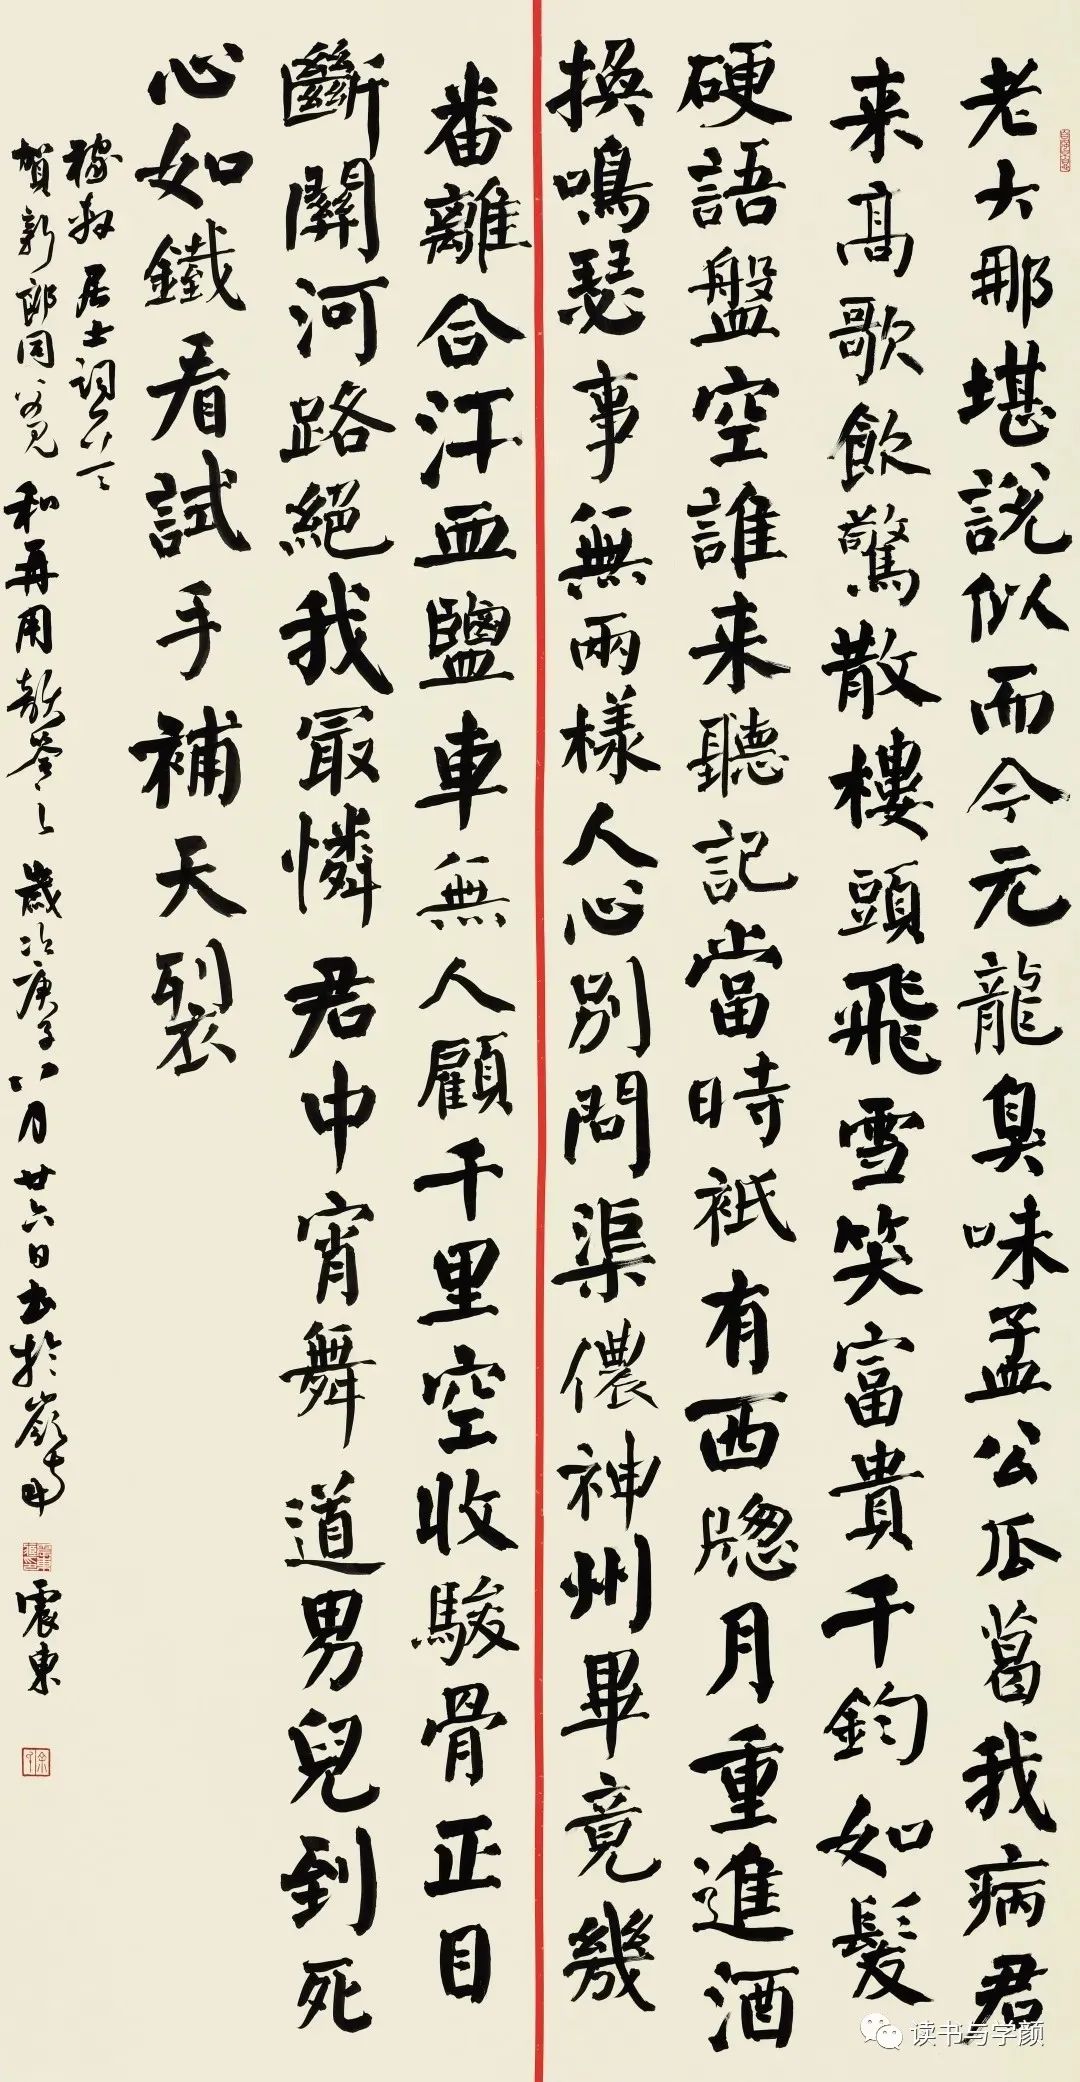 老大那堪說似而今元龍臭味孟公瓜葛我病君
来高歌飲驚散樓頭飛雪笑富貴千鈞如髮
硬語盤空誰来聽記當時祇有西牕月重進酒
換鳴瑟事無兩樣人心別問渠儂神州畢竟幾
番離合汗血鹽車無人顧千里空收駿骨正目
斷關河路絕我冣憐君中宵舞道男兒到死
心如鐵看試手補天裂
稼軒居士詞
賀新郎同父見和再用韻答之歲次庚子八月廿六日书於嶺南震東
读书与学颜